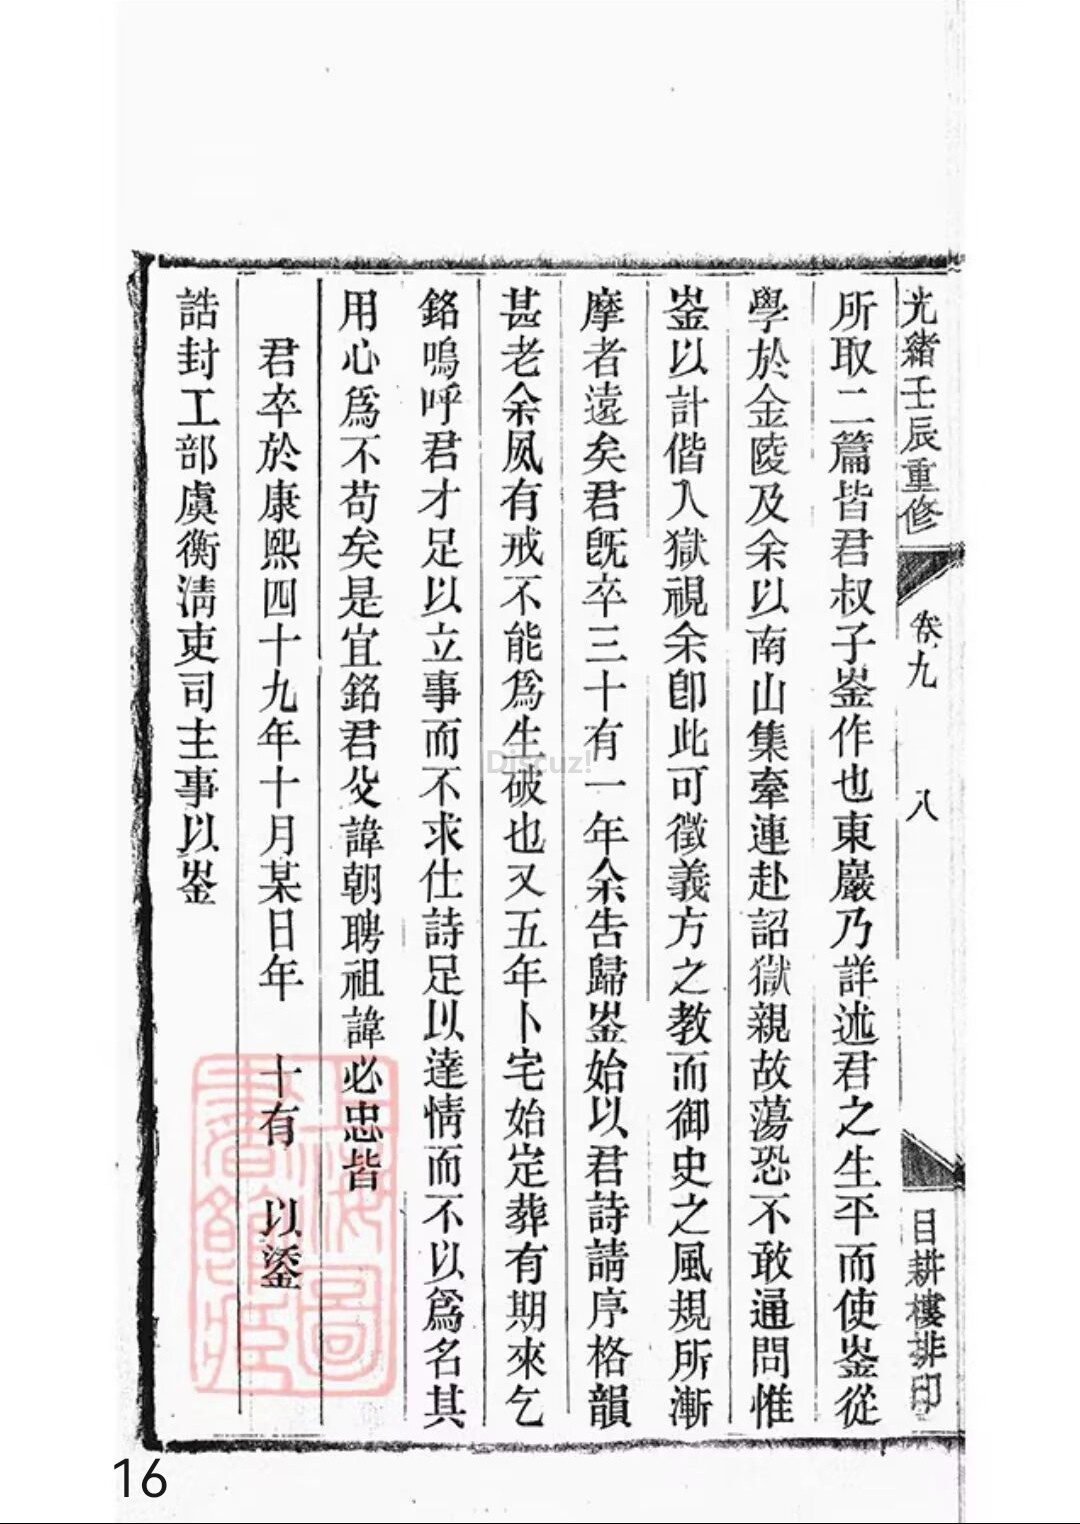 光緒壬辰重修 卷九 八 目耕樓排印
所取二篇皆君叔子崟作也東巖乃詳述君之生平而使崟從
學於金陵及余以南山集牽連赴詔獄親故蕩恐不敢通問惟
崟以計偕入獄視余卽此可徵義方之教而御史之風規所漸
摩者遠矣君旣卒三十有一年余告歸崟始以君詩請序格韻
甚老余夙有戒不能爲生破也又五年卜宅始定葬有期來乞
銘嗚呼君才足以立事而不求仕詩足以達情而不以爲名其
用心爲不苟矣是宜銘君父諱朝聘祖諱必忠皆
君卒於康熙四十九年十月某日年 十有 以鋈
誥封工部虞衡淸吏司主事以崟
上海圖書館藏
Discuz!
16